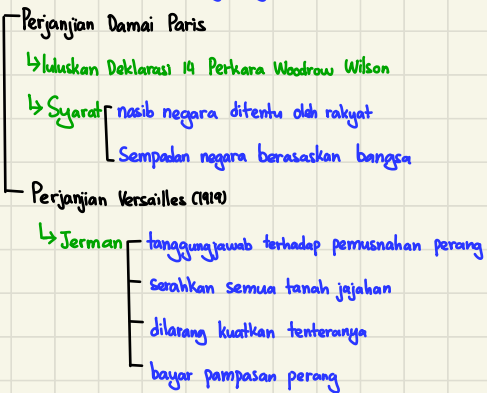 Perjanjian Damai Paris
↳ luluskan Deklarasi 14 Perkara Woodrow Wilson
↳ Syarat nasib negara ditentu oleh rakyat
Sempadan negara berasaskan bangsa
Perjanjian Versailles (1919)
↳ Jerman tanggungjawab terhadap pemusnahan perang
serahkan semua tanah jajahan
dilarang kuatkan tenteranya
bayar pampasan perang